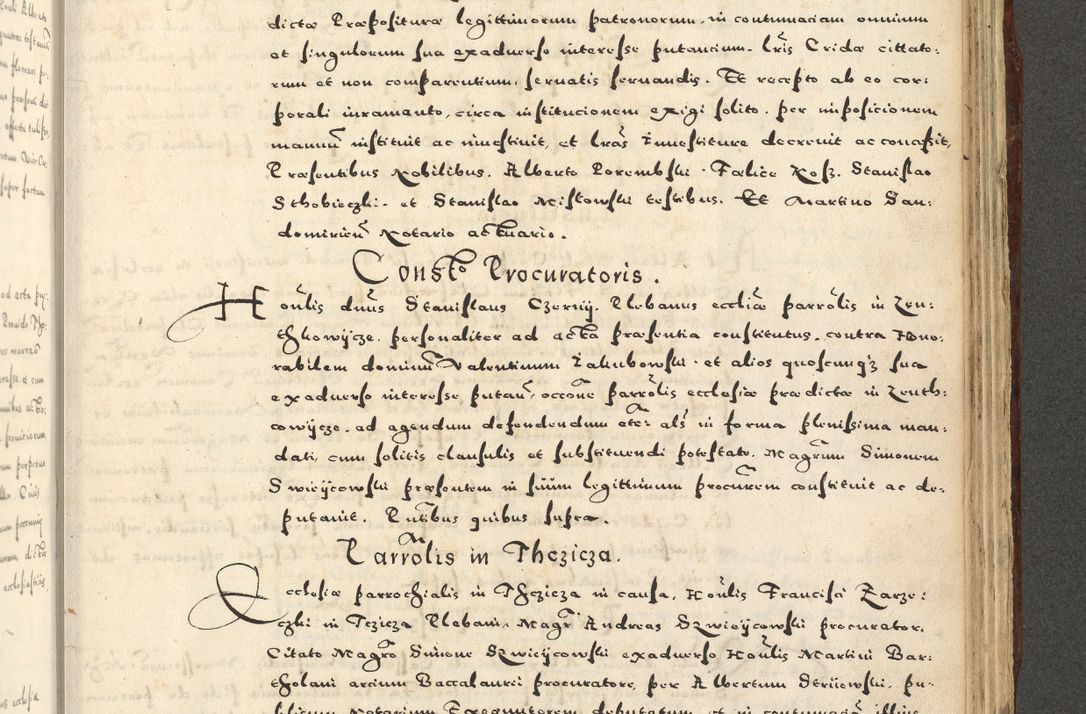 dictæ Præpositure legittimorum patronorum, in contumaciam omnium
et singulorum sua exaduerso interesse putancium. Lrīs Cridæ cittato:
rum et non comparentium, seruatis seruandis. Et recepto ab eo cor:
porali iuramento, circa institucionem exigi solito. per imposicionem
manuū instituit ac inuestiuit, et Lrās Inuestiture decreuit ac concessit,
Præsentibus Nobilibus. Alberto Porembski. Falice Kosz. Stanislao
Sthobieczki. et Stanislao Miskowski testibus. Et Martino San:
domirień Notario actuario.
Constō Procuratoris.
Honlīs dnūs Stanislaus Czerny. Plebanus eccliæ parrōlis in Zen:
thkowycze. personaliter ad acta præsentia constitutus. contra Hono:
rabilem dominū Valentinum Iakubowski. et alios quoscunqz sua
exaduerso interesse putań, occōne parrōlis ecclesiæ prædictæ in Zenth:
cowycze. ad agendum defendendum etc: als in forma plenissima man:
dati, cum solitis clausulis et substituendi potestate. Magrūm Simonem
Dzwieycowski præsentem in suum legittimum procurēm constituit ac de:
putauit. Pntībus quibus supra.
Parrōlis in Thczicza.
Ecclesiæ parrochialis in Thczicza in causa, Honlīs Francisci Zarze:
czki in Tczicza Plebani. Magr Andreas Dzwieycowski procurator.
Citato Magrō Simone Dzwieycowski exaduerso Honlīs Martini Bar:
tholani arcium Baccalaurei procuratore, per Albertum Strijewski. pu:
blicum Notarium Exequutorem deputatum et in contumaciā illius